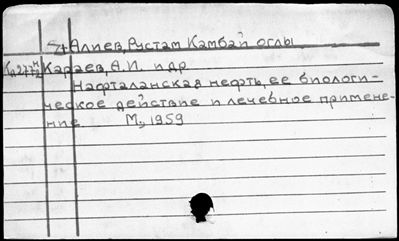 Алиев, Рустам Камбай оглы
Караев, А.И. и др
Нафталанская нефть, ее биологи-
ческое действие и лечебное примене-
ние М., 1959